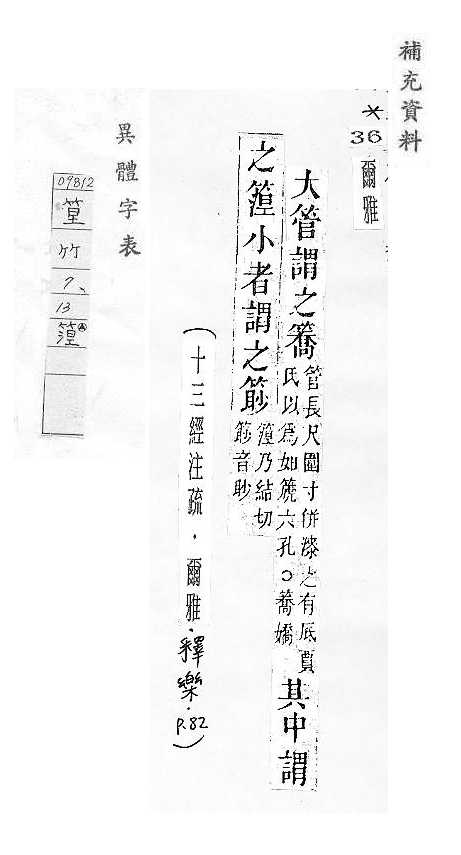 補充資料
36
爾雅
大管謂之簥管長尺圍寸併漆之有底賈氏以爲如篪六孔○簥嬌其中謂
之篞小者謂之篎篞乃結切篎音眇
(十三經注疏．爾雅．釋樂．P.82)
異體字表
09812
篂
竹
7
13
篞